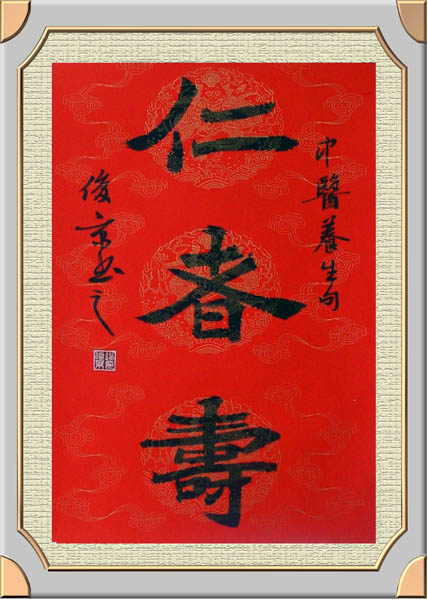 中醫養生句
仁者壽
俊京书之